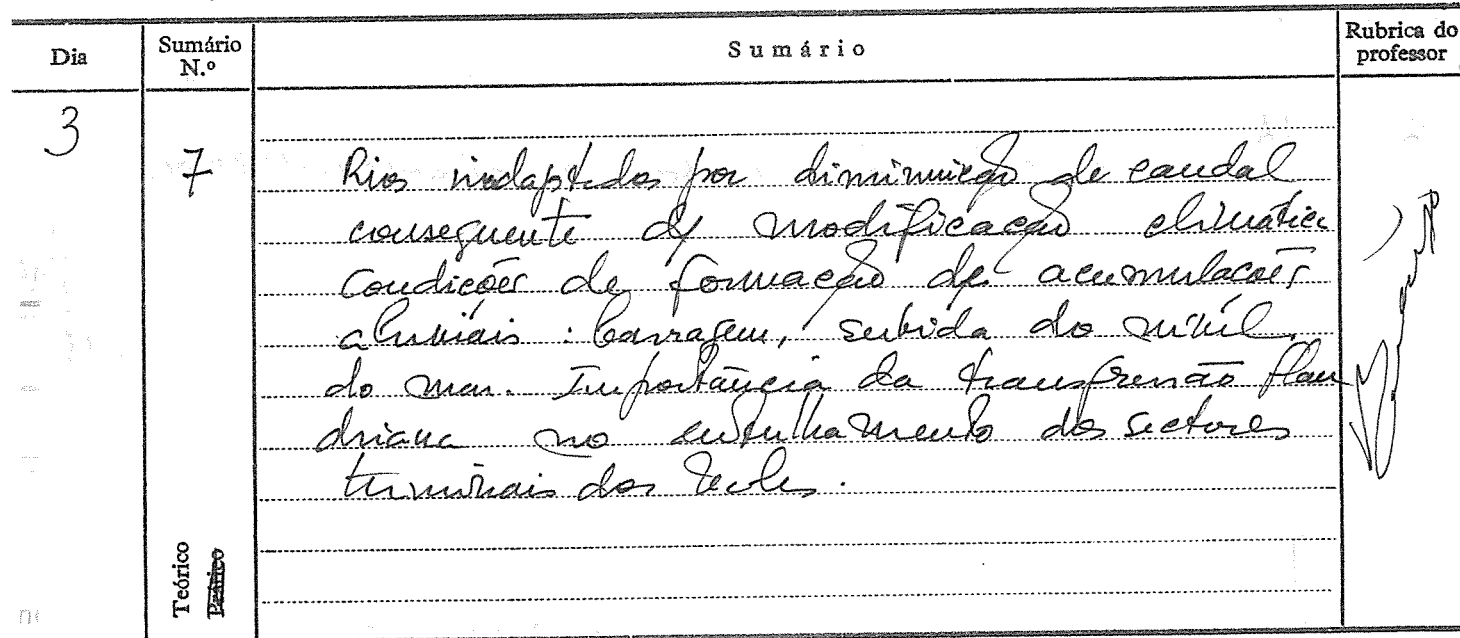 Dia
Sumário N.º
Sumário
Rubrica do professor
3
7
Rios inadaptados por diminuição de caudal
consequente de modificação climática
Condições de formação de acumulações
aluviais : barragem, subida do nível
do mar. Importância da transgressão flan
driana no entulhamento dos sectores
terminais dos vales.
Teórico
Prático